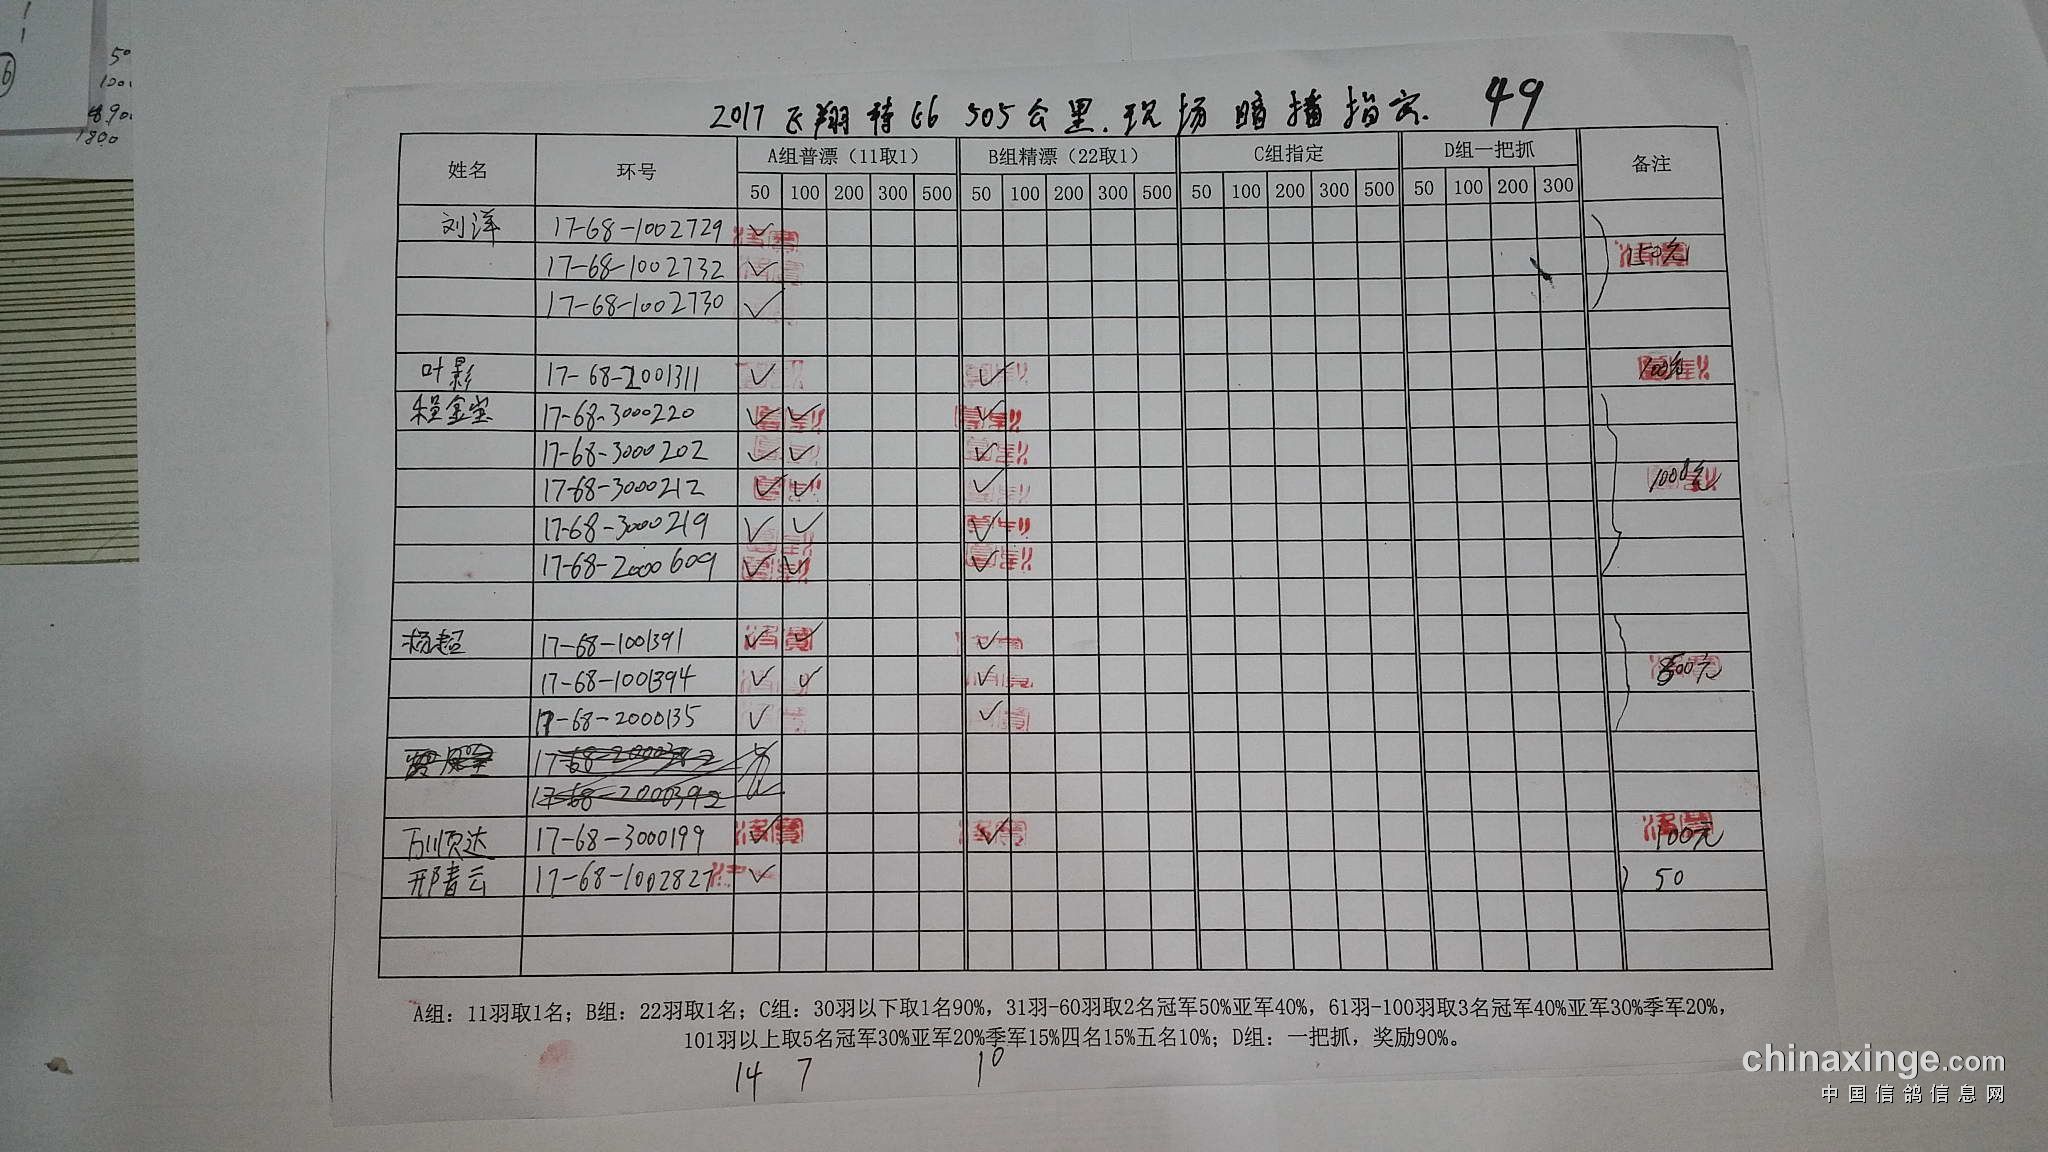 50
100
890
1800
6
2017飞翔特比6 505公里.现场暗插指定. 49
姓名 环号 A组普漂（11取1） B组精漂（22取1） C组指定 D组一把抓 备注
50 100 200 300 500 50 100 200 300 500 50 100 200 300 500 50 100 200 300
刘洋 17-68-1002729 ✓
17-68-1002732 ✓ 150元
17-68-1002730 ✓
叶影 17-68-2001311 ✓ ✓ 100元
程金宝 17-68-3000220 ✓ ✓ ✓
17-68-3000202 ✓ ✓ ✓
17-68-3000212 ✓ ✓ ✓ 1000元
17-68-3000219 ✓ ✓ ✓
17-68-2000609 ✓ ✓ ✓
杨超 17-68-1001391 ✓ ✓ ✓
17-68-1001394 ✓ ✓ ✓ 500元
17-68-2000135 ✓ ✓
17-68-2000392
17-68-2000392
万川顺达 17-68-3000199 ✓ ✓ 100元
邢青云 17-68-1002827 ✓ 50
A组：11羽取1名；B组：22羽取1名；C组：30羽以下取1名90%，31羽-60羽取2名冠军50%亚军40%，61羽-100羽取3名冠军40%亚军30%季军20%，
101羽以上取5名冠军30%亚军20%季军15%四名15%五名10%；D组：一把抓，奖励90%。
14 7 10
chinaxinge.com
中国信鸽信息网